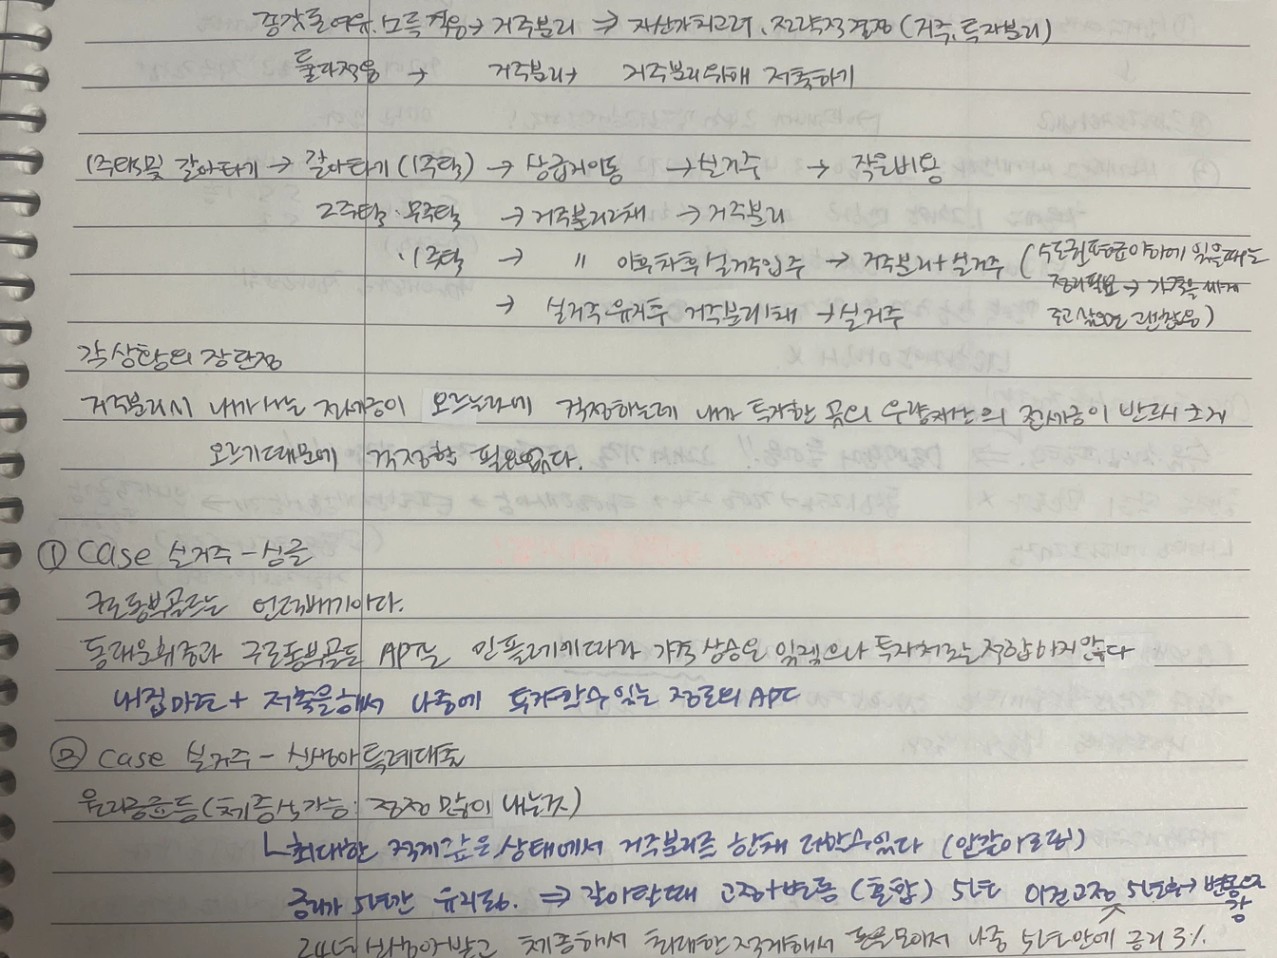 종잣돈여유, 소득적음 → 거주분리 ⇒ 자산가치고려, 전략적결정 (거주,투자분리)
둘다적음 → 거주분리 → 거주분리위해 저축하기
1주택및 갈아타기 → 갈아타기 (1주택) → 상급지이동 → 실거주 → 작은비용
2주택·무주택 → 거주분리2채 → 거주분리
·1주택 → 〃 이후차후실거주입주 → 거주분리+실거주 (수도권평균이하에 있을때는
정리필요 → 가격을 싸게
→ 실거주유지후 거주분리1채 → 실거주 주고샀으면 괜찮음)
각 상황의 장단점
거주분리시 내가사는 전세금이 오르는데에 걱정하는데 내가 투자한 곳의 우량자산의 전세금이 반드시 크게
오르기때문에 걱정할 필요없다.
① Case 실거주 - 싱글
구로동부골드는 언덕배기이다.
동래운휘종과 구로동부골든 APT는 인플레에따라 가격상승은 있겠으나 투자처로는적합하지않다
내집마련 + 저축을해서 나중에 투자할수있는 정도의 APT
② Case 실거주 - 신생아특례대출
원리금균등 (체증식가능: 점점 많이 내는것)
ㄴ최대한 적게갚은상태에서 거주분리를 한채 더할수있다 (안갈아타됨)
금리가 5년간 유지됨. ⇒ 갈아탈때 고정+변동 (혼합) 5년 이건고정 5년후→변동으로
24년 신생아받고 체증해서 최대한적게해서 돈을모아서 나중 5년안에 금리 3%